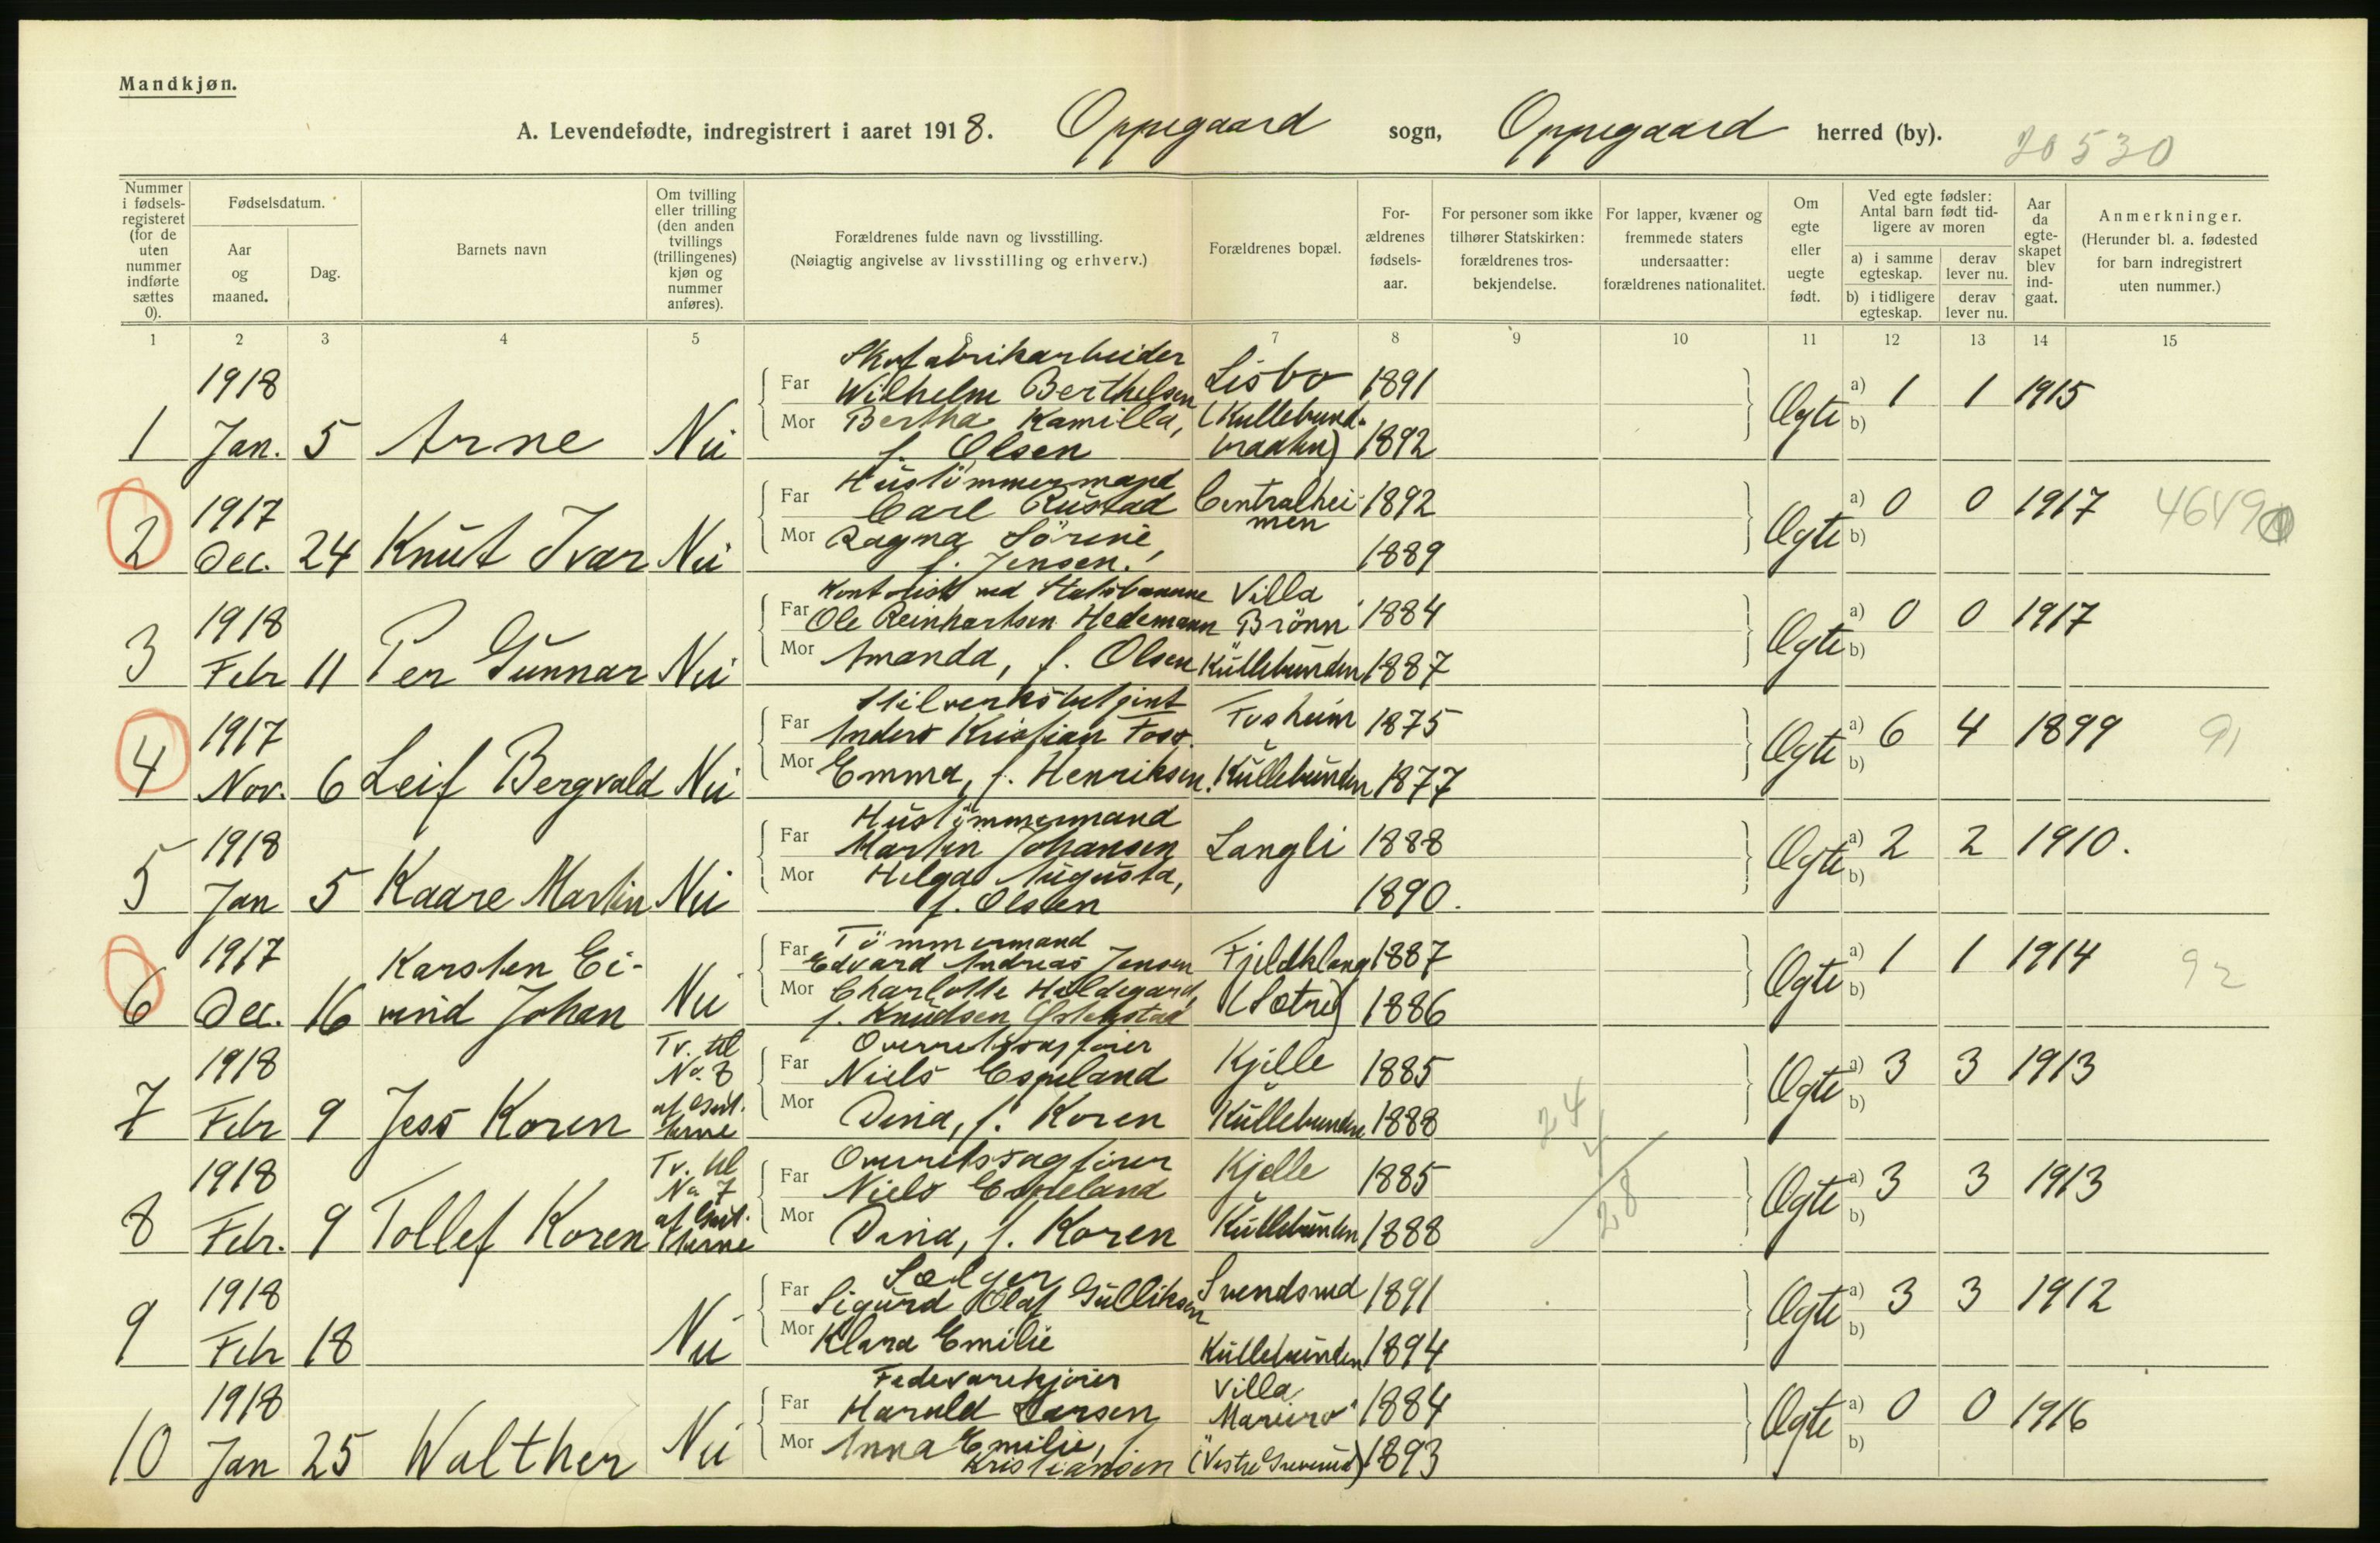 Mandkjøn.
A. Levendefødte, indregistrert i aaret 1918. Oppegaard sogn, Oppegaard herred (by). 20530
Nummer i fødsels-registeret (for de uten nummer indførte sættes 0).
Fødselsdatum.
Aar og maaned.
Dag.
Barnets navn
Om tvilling eller trilling (den anden tvillings (trillingenes) kjøn og nummer anføres).
Forældrenes fulde navn og livsstilling.
(Nøiagtig angivelse av livsstilling og erhverv.)
Forældrenes bopæl.
For-ældrenes fødsels-aar.
For personer som ikke tilhører Statskirken: forældrenes tros-bekjendelse.
For lapper, kvæner og fremmede staters undersaatter: forældrenes nationalitet.
Om egte eller uegte født.
Ved egte fødsler: Antal barn født tid-ligere av moren
a) i samme egteskap.
derav lever nu.
b) i tidligere egteskap.
derav lever nu.
Aar da egte-skapet blev ind-gaat.
Anmerkninger.
(Herunder bl. a. fødested for barn indregistrert uten nummer.)
1 2 3 4 5 6 7 8 9 10 11 12 13 14 15
Skofabrikarbeider
1918 Far Wilhelm Berthelsen Lisbo 1891 a) 1 1 1915
1 Jan. 5 Arne Nei Mor Bertha Kamilla, (Kullebund- Ægte b)
f. Olsen braaten) 1892
Hustømmermand
1917 Far Carl Rustad Centralhei- 1892 a) 0 0 1917 46490
2 Dec. 24 Knut Ivar Nei Mor Ragna Sørine, men Ægte b)
f. Jensen. 1889
Kontorist ved Statsbanerne Villa
1918 Far Ole Reinhartsen Hedemann Brönn 1884 a) 0 0 1917
3 Febr 11 Per Gunnar Nei Mor Amanda, f. Olsen Kullebunden 1887 Ægte b)
1917 Far Anders Kristian Foss. Fosheim 1875 a) 6 4 1899 91
4 Nov. 6 Leif Bergvald Nei Mor Emma, f. Henriksen. Kullebunden 1877 Ægte b)
Hustømmermand
1918 Far Martin Johansen Langli 1888 a) 2 2 1910.
5 Jan 5 Kaare Martin Nei Mor Helga Augusta, Ægte b)
f. Olsen 1890.
Tömmermand
1917 Karsten Ei- Far Edvard Andreas Jensen Fjeldklang 1887 a) 1 1 1914 92
6 Dec. 16 vind Johan Nei Mor Charlotte Hildegard, (Sætre) 1886 Ægte b)
f. Knudsen
Tv. til Overretssagfører
1918 No. 8 Far Niels Espeland Kjelle 1885 a) 3 3 1913
7 Febr 9 Jess Koren af Gut- terne Mor Dina, f. Koren Kullebunden 1888 Ægte b)
24
4
28
Tv. til Overretssagfører
1918 No 7 Far Niels Espeland Kjelle 1885 a) 3 3 1913
8 Febr. 9 Tollef Koren af Gut- terne Mor Dina, f. Koren Kullebunden 1888 Ægte b)
Sælger
1918 Far Sigurd Olaf Gulliksen Svendsrud 1891 a) 3 3 1912
9 Febr 18 Nei Mor Klara Emilie Kullebunden 1894 Ægte b)
Fedevarekjører Villa
1918 Far Harald Larsen Mariero 1884 a) 0 0 1916
10 Jan 25 Walther Nei Mor Anna Emilie, f. Ægte b)
Kristiansen (Vestre Greverud) 1893